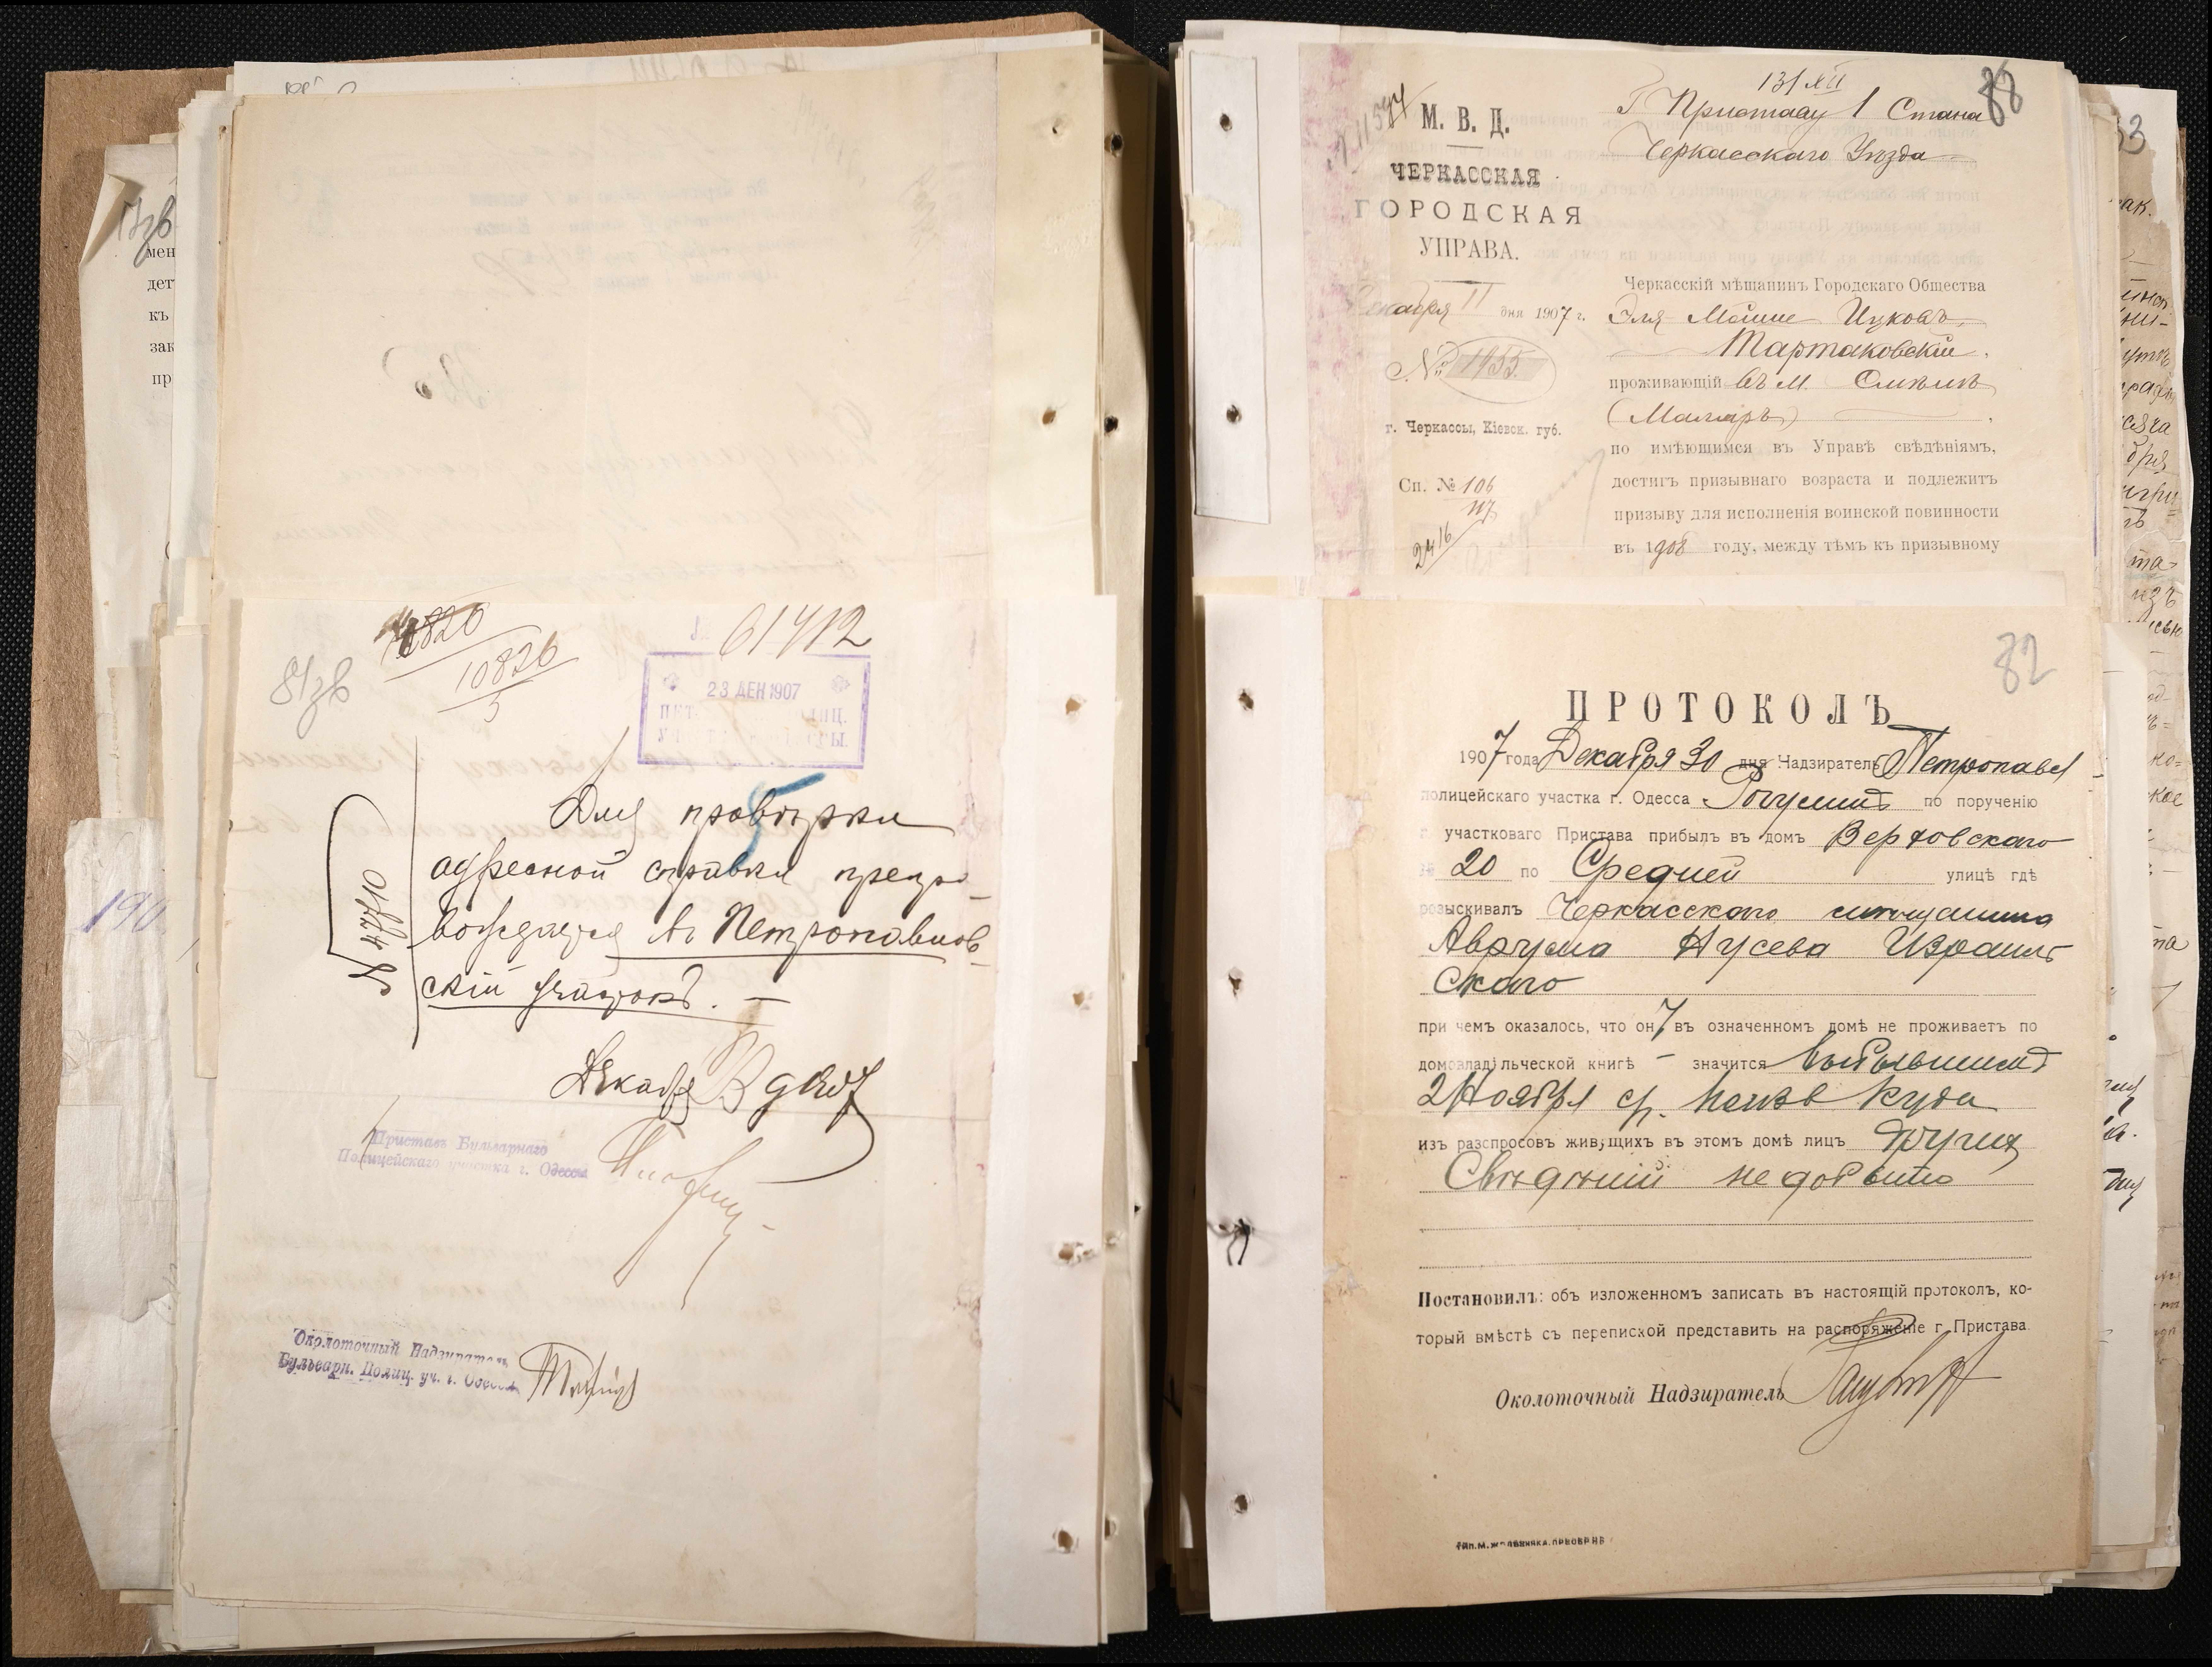 81зв
10826
5
61412
23 ДЕК 1907
Для провѣрки
адресной справки препро-
вождается въ Петропавлов-
скій участокъ. —
№ 47710
Декабр 1907
Приставъ Бульварнаго
Полицейскаго участка г. Одессы
Околоточный Надзиратель
Бульварн. Полиц. уч. г. Одессы
мен
дет
къ
зак
пр
190
88
13/XII
Г Приставу 1 Стана
Черкасскаго Уѣзда
М. В. Д.
ЧЕРКАССКАЯ
ГОРОДСКАЯ
УПРАВА.
Декабря 11 дня 1907 г.
№ 1955
г. Черкассы, Кіевск. губ.
Сп. № 106
Черкасскій мѣщанинъ Городскаго Общества
Эля Мошке Ицковъ
Тартаковскій
проживающій въ м. Смѣлѣ
(Маляръ)
по имѣющимся въ Управѣ свѣдѣніямъ,
достигъ призывнаго возраста и подлежитъ
призыву для исполненія воинской повинности
въ 1908 году, между тѣмъ къ призывному
82
ПРОТОКОЛЪ
1907 года Декабря 30 дня Надзиратель Петропавл
полицейскаго участка г. Одесса по порученію
г. участковаго Пристава прибылъ въ домъ Вертовскаго
№ 20 по Средней улицѣ гдѣ
розыскивалъ Черкасскаго мѣщанина
Аврума Нусева Израиль
скаго
при чемъ оказалось, что онъ въ означенномъ домѣ не проживаетъ по
домовладѣльческой книгѣ — значится выбывшимъ
2 Ноября с/г. неизв куда
изъ разспросовъ живущихъ въ этомъ домѣ лицъ другихъ
Свѣдѣній не добыто
Постановилъ: объ изложенномъ записать въ настоящій протоколъ, ко-
торый вмѣстѣ съ перепиской представить на распоряженіе г. Пристава
Околоточный Надзиратель